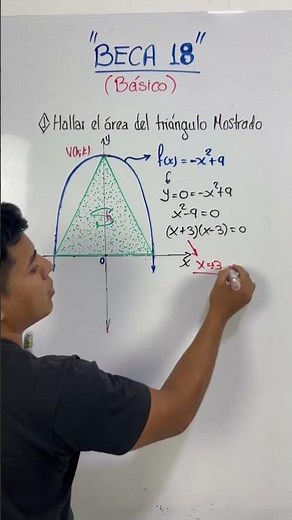 "BECA 18"
(Básico)
① Hallar el área del triángulo Mostrado
y
V(h;k)
f(x)=-x²+9
y=0=-x²+9
x²-9=0
(x+3)(x-3)=0
S
0
x
x=-3